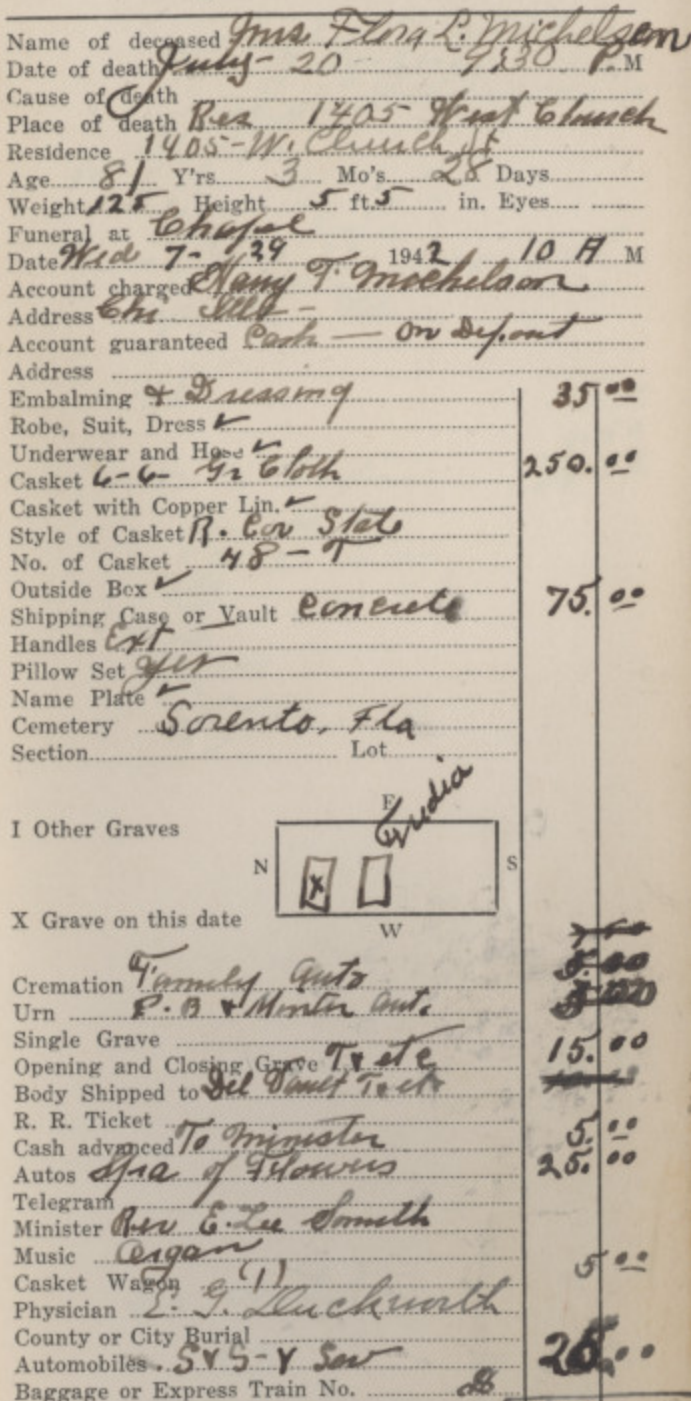 Name of deceased Mrs. Flora L. Michelson
Date of death July - 20 9:30 P. M
Cause of death
Place of death Res 1405 West Church
Residence 1405 - W. Church St
Age 81 Y'rs 3 Mo's 28 Days
Weight 125 Height 5 ft. 5 in. Eyes
Funeral at Chapel
Date Wed 7 - 29 1942 10 A M
Account charged Harry T. Michelson
Address Chi Ills -
Account guaranteed Cash — on Deposit
Address
Embalming & Dressing 35 00
Robe, Suit, Dress ✓
Underwear and Hose ✓
Casket 6-6- Gr Cloth 250. 00
Casket with Copper Lin. ✓
Style of Casket R. Cor State
No. of Casket 48 - T
Outside Box ✓
Shipping Case or Vault Concrete 75. 00
Handles Ext
Pillow Set yes
Name Plate ✓
Cemetery Sorento, Fla
Section Lot
E
I Other Graves
N S
X
X Grave on this date
W
Cremation Family Auto 5.00
Urn P. B & Minter Aut.
Single Grave
Opening and Closing Grave T & etc 15. 00
Body Shipped to Del Vault T & etc
R. R. Ticket
Cash advanced To minister 5. 00
Autos Spra of Flowers 25. 00
Telegram
Minister Rev E. Lee Smith
Music Organ 5 00
Casket Wagon (1)
Physician E. G. Duckworth
County or City Burial
Automobiles S & S - Y Sow
Baggage or Express Train No.